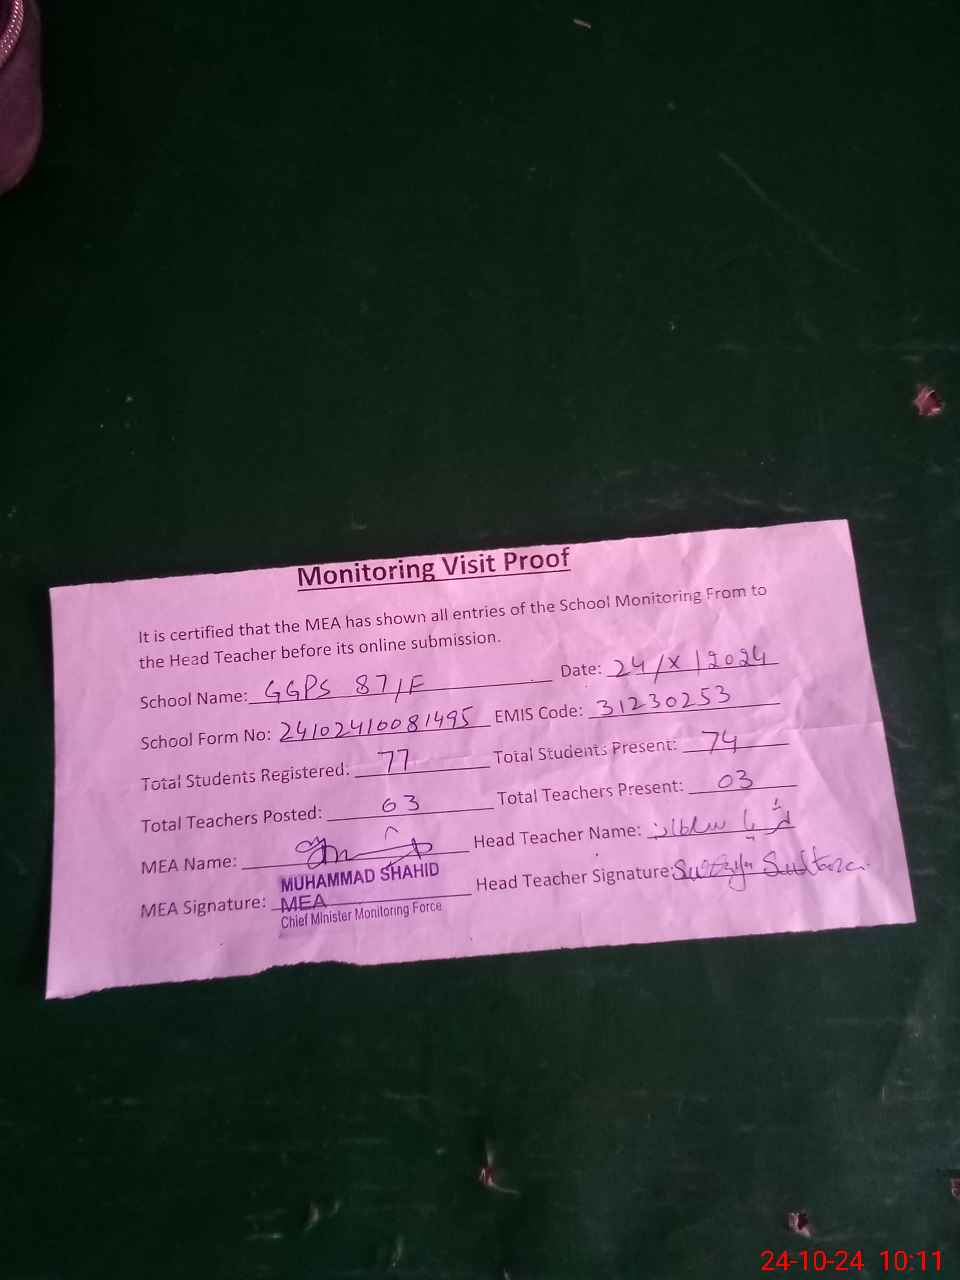 Monitoring Visit Proof
It is certified that the MEA has shown all entries of the School Monitoring From to
the Head Teacher before its online submission.
School Name: GGPS 87/F Date: 24/X/2024
School Form No: 24102410081495 EMIS Code: 31230253
Total Students Registered: 77 Total Students Present: 74
Total Teachers Posted: 03 Total Teachers Present: 03
MEA Name: Head Teacher Name: ثریا سلطانہ
MEA Signature: MUHAMMAD SHAHID Head Teacher Signature: Surayya Sultana
MEA
Chief Minister Monitoring Force
24-10-24 10:11